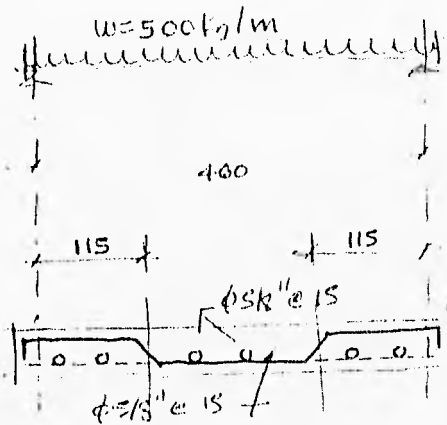 w=500kg/m
4.00
115 115
φ5/8"@ 15
φ5/8"@ 15